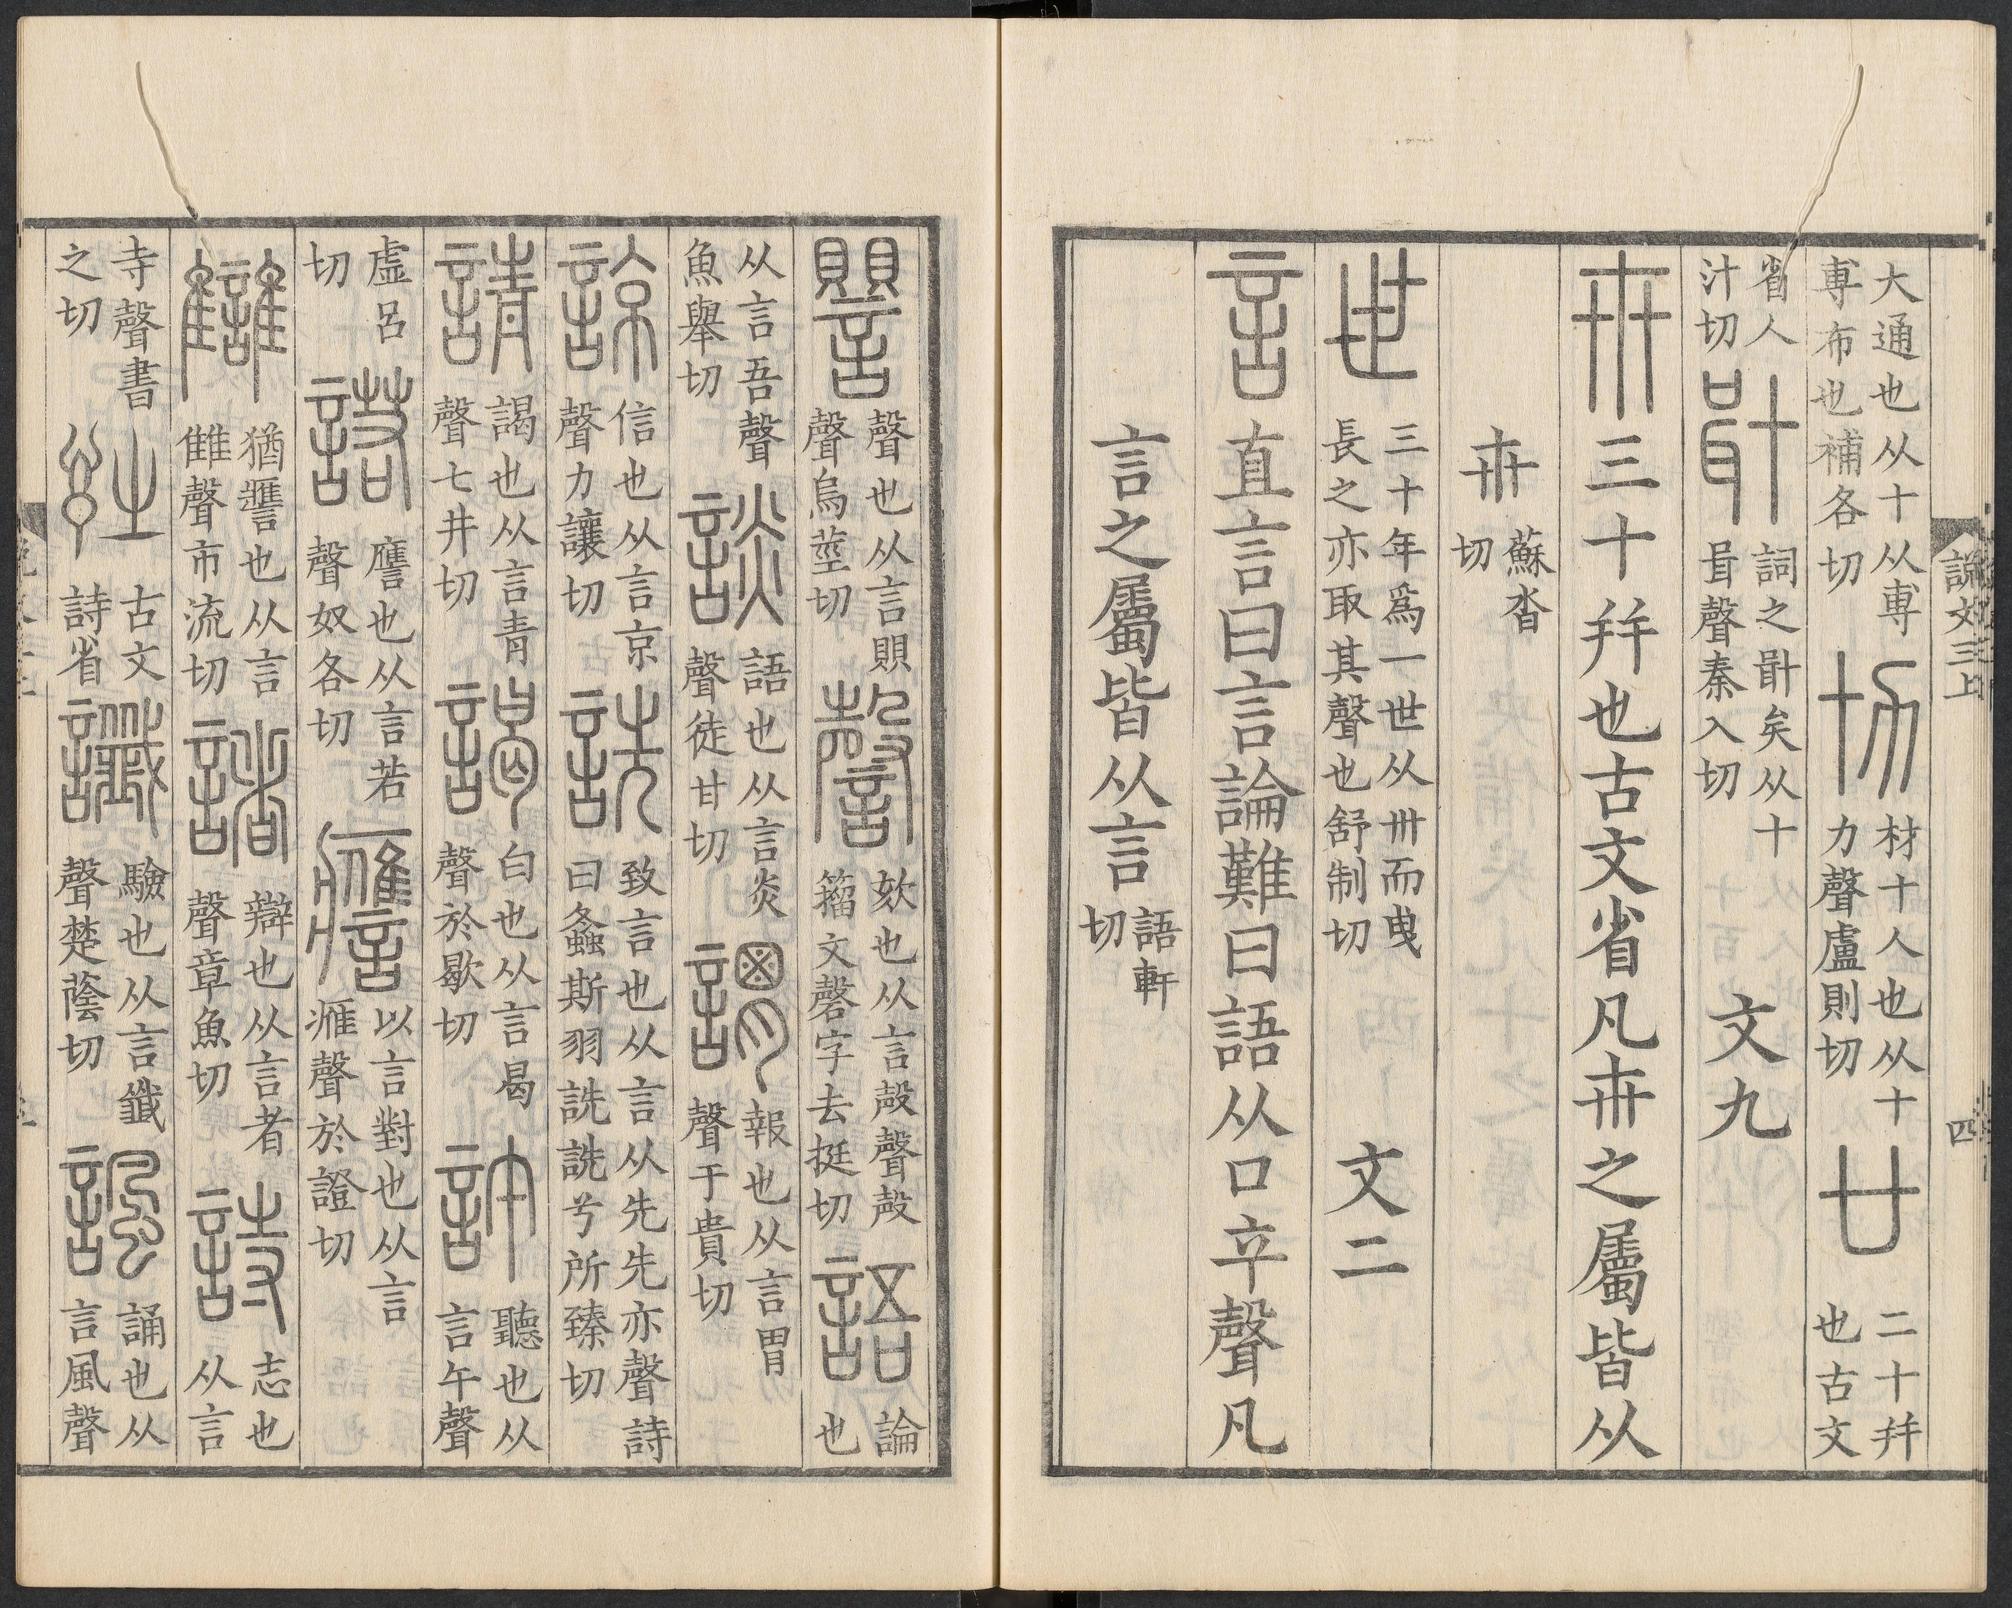 大通也从十从尃
尃布也補各切
材十人也从十
力聲盧則切
廿
二十幷
也古文
省人
汁切
詞之𠦫矣从十
咠聲秦入切
文九
卅三十幷也古文省凡卅之屬皆从
卅
蘇沓
切
世
三十年爲一世从卅而曳
長之亦取其聲也舒制切
文二
言直言曰言論難曰語从口䇂聲凡
言之屬皆从言
語軒
切
説文三上
四
譻
聲也从言賏
聲烏莖切
謦
欬也从言殸聲殸
籀文磬字去挺切
語
論
也
从言吾聲
魚舉切
談
語也从言炎
聲徒甘切
謂
報也从言胃
聲于貴切
諒
信也从言京
聲力讓切
詵
致言也从言从先先亦聲詩
曰螽斯羽詵詵兮所臻切
請
謁也从言青
聲七井切
謁
白也从言曷
聲於歇切
許
聽也从
言午聲
虛呂
切
諾
譍也从言若
聲奴各切
譍
以言對也从言
𤸰聲於證切
讎
猶譍也从言
雔聲市流切
諸
辯也从言者
聲章魚切
詩
志也
从言
寺聲書
之切
古文
詩省
讖
驗也从言韱
聲楚蔭切
諷
誦也从
言風聲